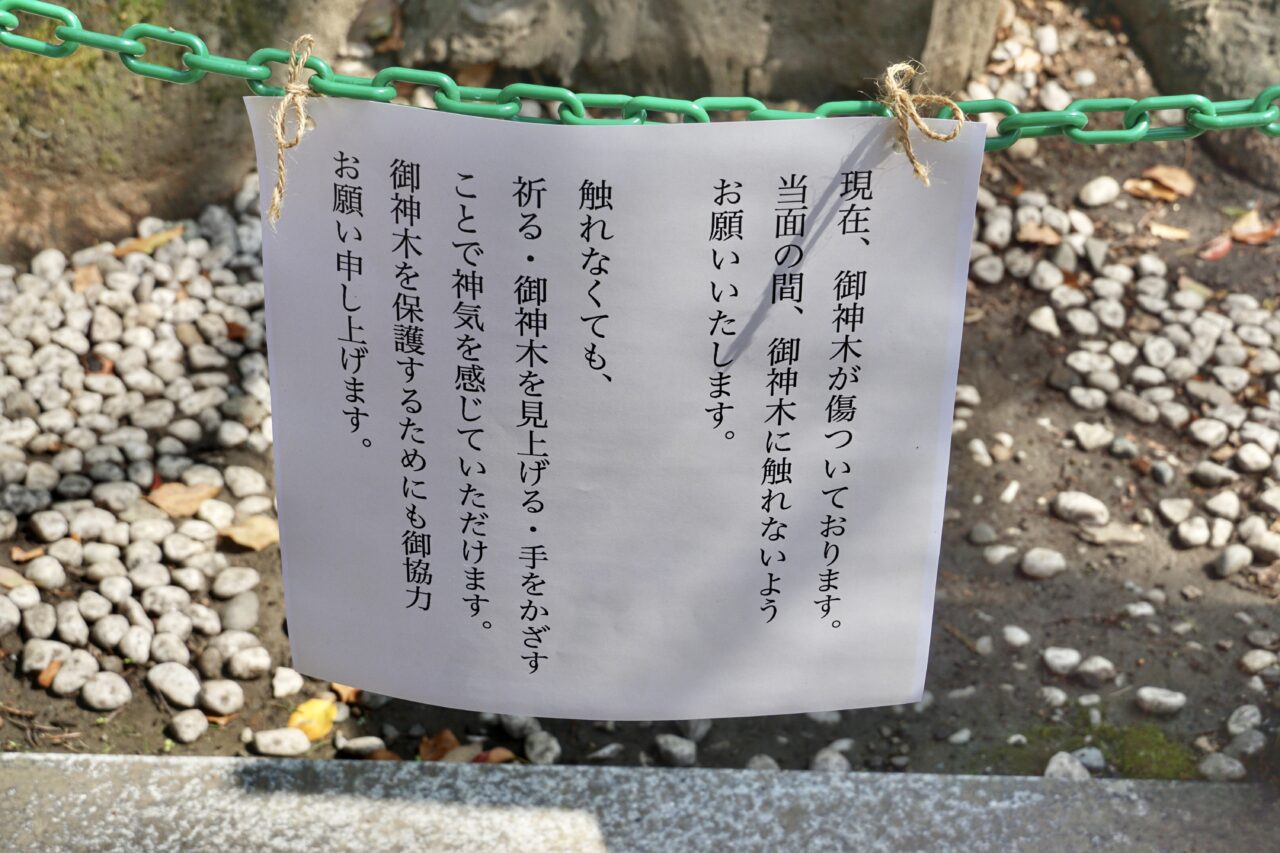 現在、御神木が傷ついております。
当面の間、御神木に触れないよう
お願いいたします。
触れなくても、
祈る・御神木を見上げる・手をかざす
ことで神気を感じていただけます。
御神木を保護するためにも御協力
お願い申し上げます。